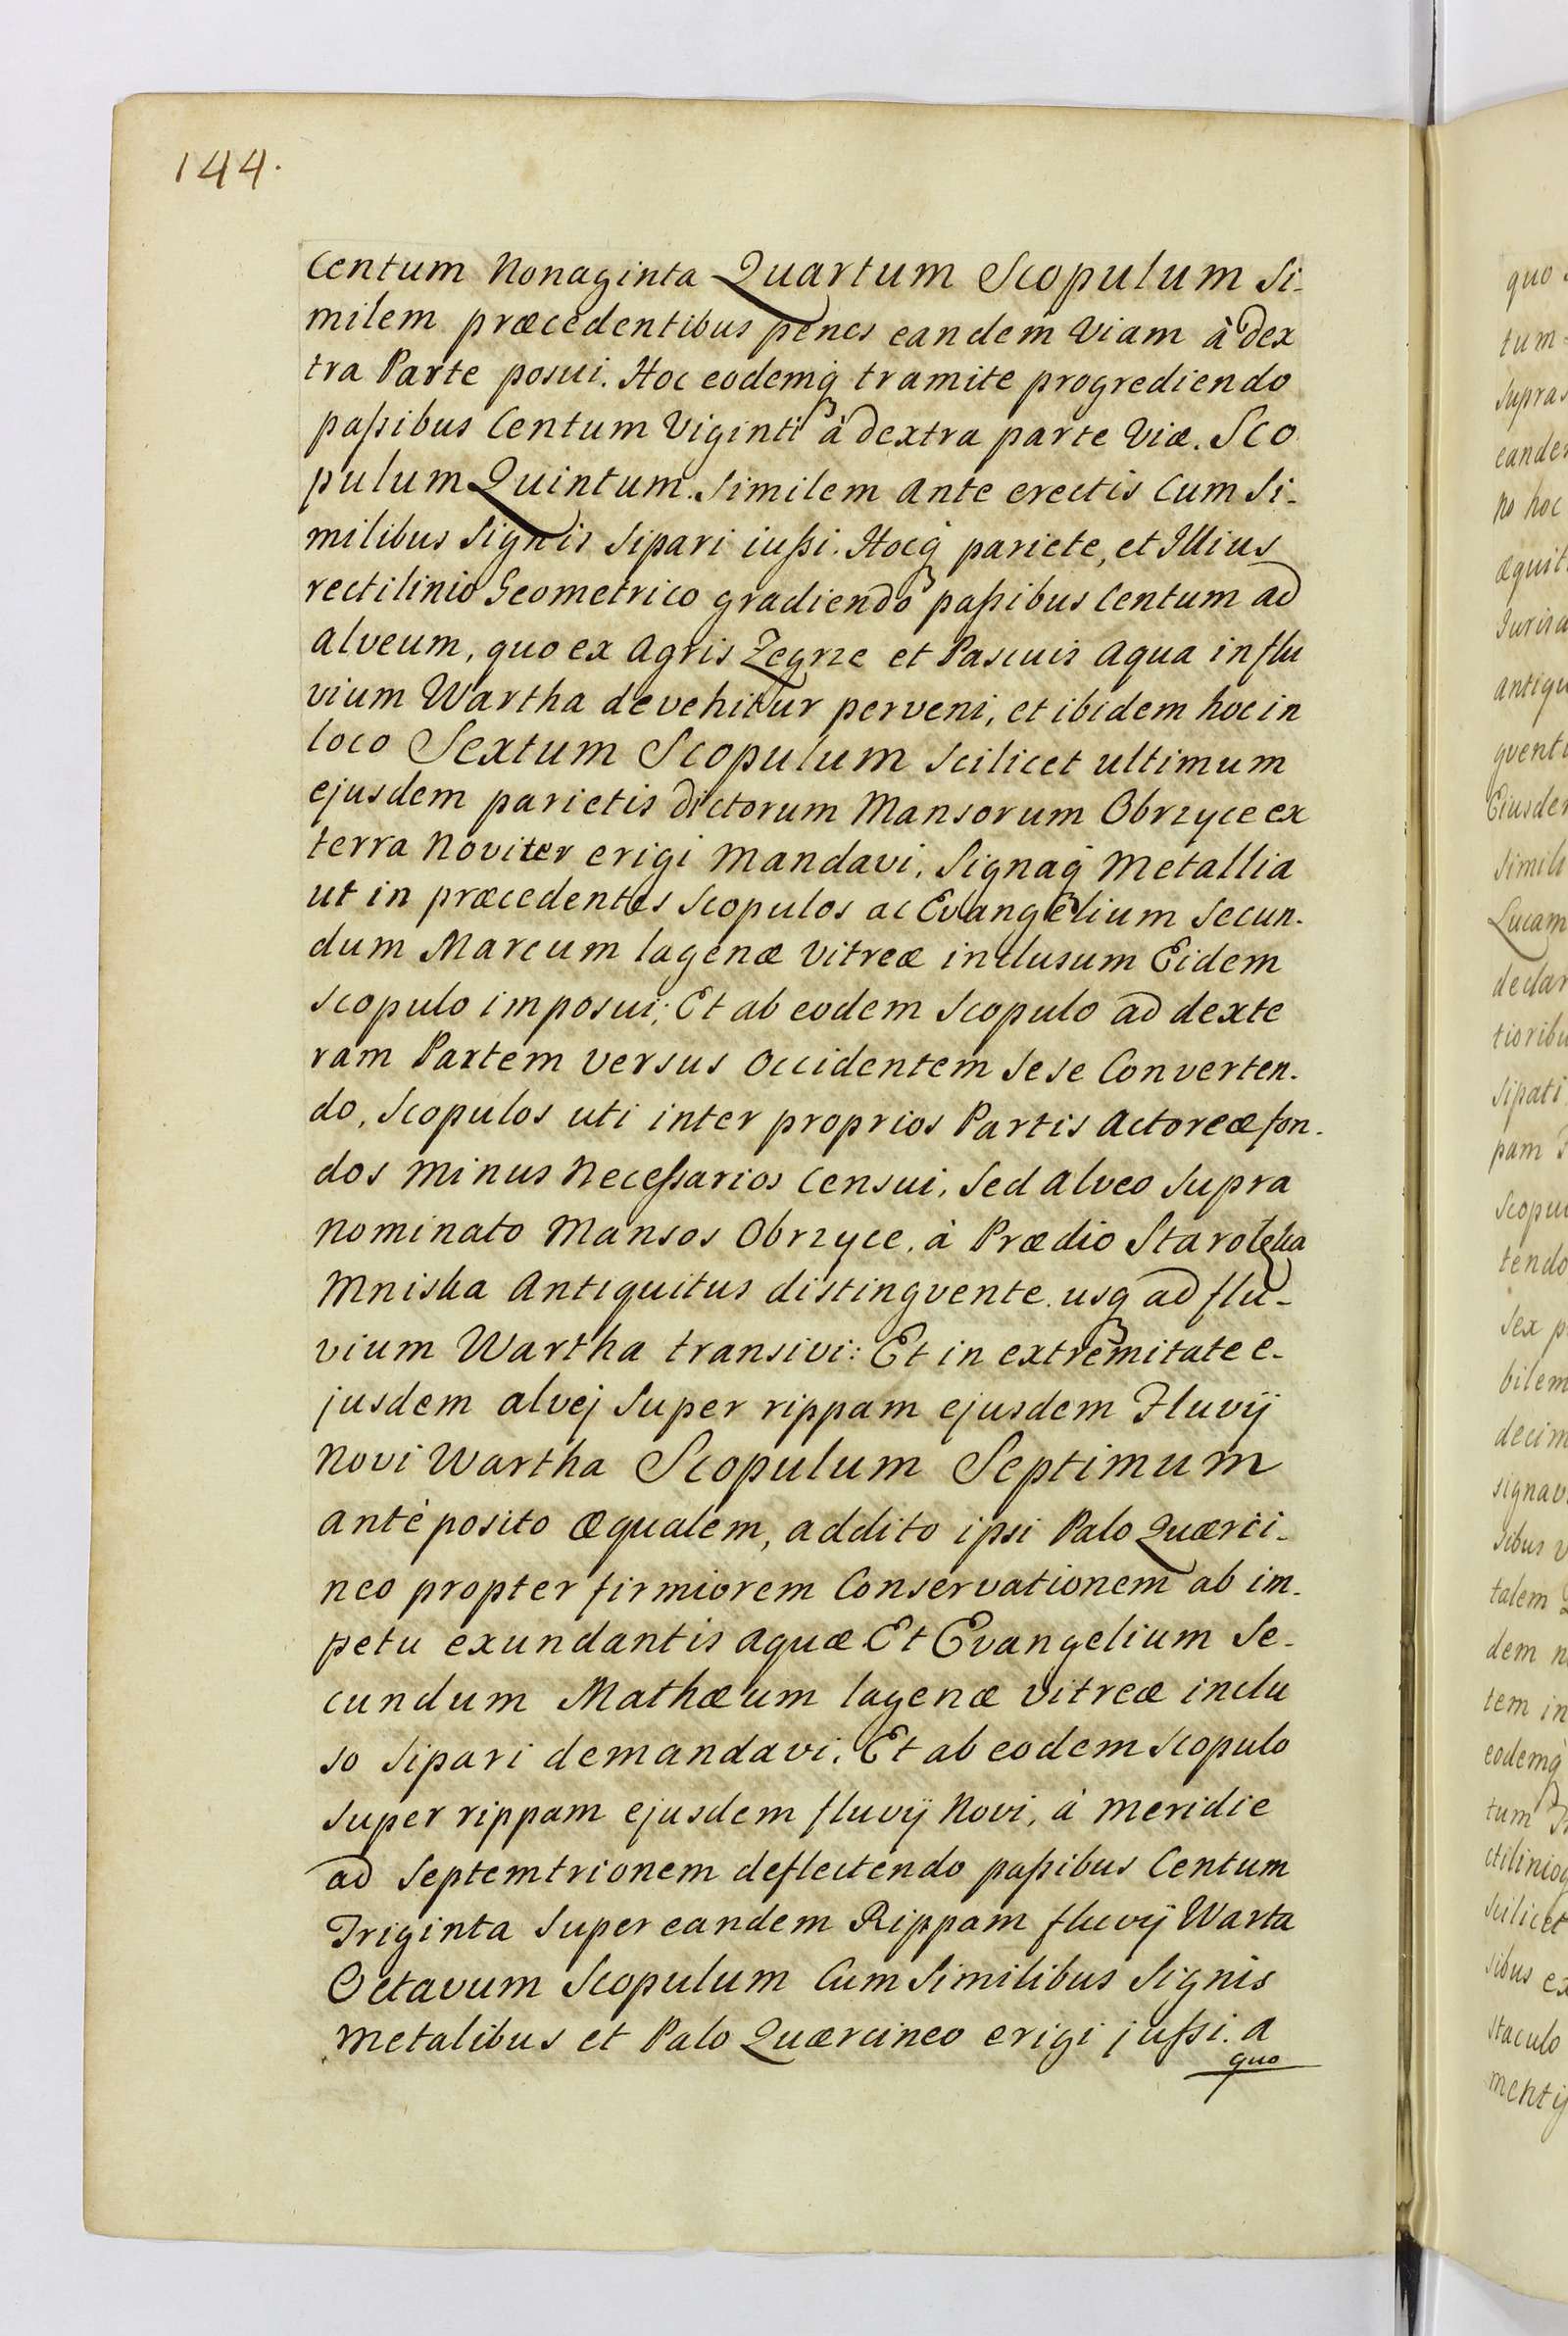 144.
Centum Nonaginta Quartum Scopulum Si-
milem præcedentibus penes eandem Viam à dex
tra Parte posui. Hoc eodemq tramite progrediendo
paßibus Centum Viginti à dextra parte Viæ. Sco
pulum Quintum. Similem Ante erectis Cum Si-
milibus Signis Sipari iußi. Hocq pariete, et Illius
rectilinio Geometrico gradiendo paßibus Centum ad
Alveum, quo ex Agris Zegrze et Pascuis Aqua in flu
vium Wartha devehitur perveni, et ibidem hoc in
loco Sextum Scopulum Scilicet ultimum
ejusdem parietis dictorum Mansorum Obrzyce ex
terra Noviter erigi Mandavi, Signaq Metallia
ut in præcedentes Scopulos ac Evangelium Secun-
dum Marcum lagenæ Vitreæ inclusum Eidem
Scopulo imposui; Et ab eodem Scopulo ad dexte
ram Partem versus Occidentem Sese Converten-
do, Scopulos uti inter proprios Partis Actoreæ fon-
dos Minus Neceßarios Censui, Sed Alveo Supra
Nominato Mansos Obrzyce, à Prædio Staroleka
Mniska Antiquitus distingvente usq ad flu-
vium Wartha transivi: Et in extremitate e-
jusdem alvej Super rippam ejusdem Fluvÿ
Novi Wartha Scopulum Septimum
antè posito Æqualem, addito ipsi Palo Quærci-
neo propter firmiorem Conservationem ab im-
petu exundantis Aquæ Et Evangelium Se-
cundum Mathæum lagenæ vitreæ inclu
so Sipari demandavi. Et ab eodem Scopulo
Super rippam ejusdem fluvÿ Novi, à Meridie
ad Septemtrionem deflectendo paßibus Centum
Triginta Super eandem Rippam fluvÿ Warta
Octavum Scopulum Cum Similibus Signis
Metalibus et Palo Quærcineo erigi jußi. A
quo
quo
tum
Supra
eande
no hoc
æquit
Juris
antiqu
quent
Eiusde
Simili
Lucam
declar
tioribu
Sipati
pam
Scopu
tendo
Sex p
bilem
decim
signav
talem
dem n
tem in
eodemq
tum
Scilicet
sibus ex
staculo
mentÿ